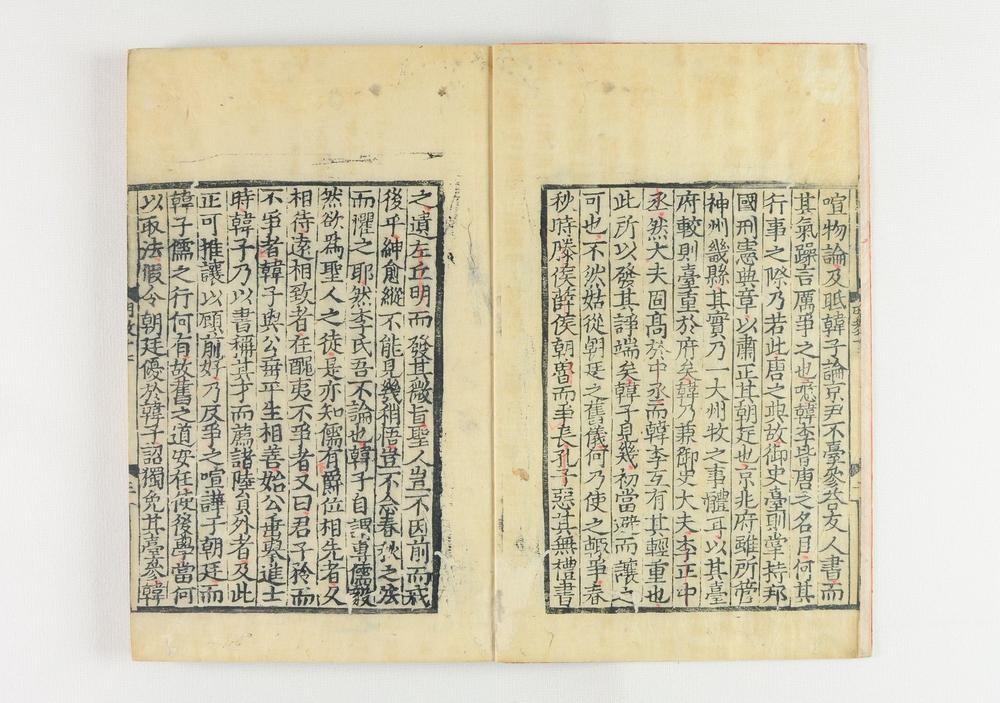 喧物論及眡韓子論京尹不臺參荅友人書而
其氣躁言厲爭之也噫韓李皆唐之名臣何其
行事之際乃若此唐之典故御史臺則掌持邦
國刑憲典章以肅正其朝廷也京兆府雖所管
神州畿縣其實乃一大州牧之事體耳以其臺
府較則臺重於府矣韓乃兼御史大夫李正中
丞然大夫固高於中丞而韓李互有其輕重也
此所以發其諍端矣韓子見幾初當避而讓之
可也不然姑從朝廷之舊儀何乃使之輙爭春
秋時滕侯薛侯朝魯而爭長孔子惡其無禮書
之遺左丘明而發其微旨聖人豈不因前而戒
後乎紳愈縱不能見幾稍悟豈不念春秋之法
而懼之耶然李氏吾不論也韓子自謂專儒毅
然欲爲聖人之徒是亦知儒有爵位相先者又
相待遠相致者在醜夷不爭者又曰君子矜而
不爭者韓子與公垂平生相善始公垂舉進士
時韓子乃以書稱其才而薦諸陸員外者及此
正可推讓以顧前好乃反爭之喧譁于朝廷而
韓子儒之行何有故舊之道安在使後學當何
以取法假令朝廷優於韓子詔獨免其臺參韓